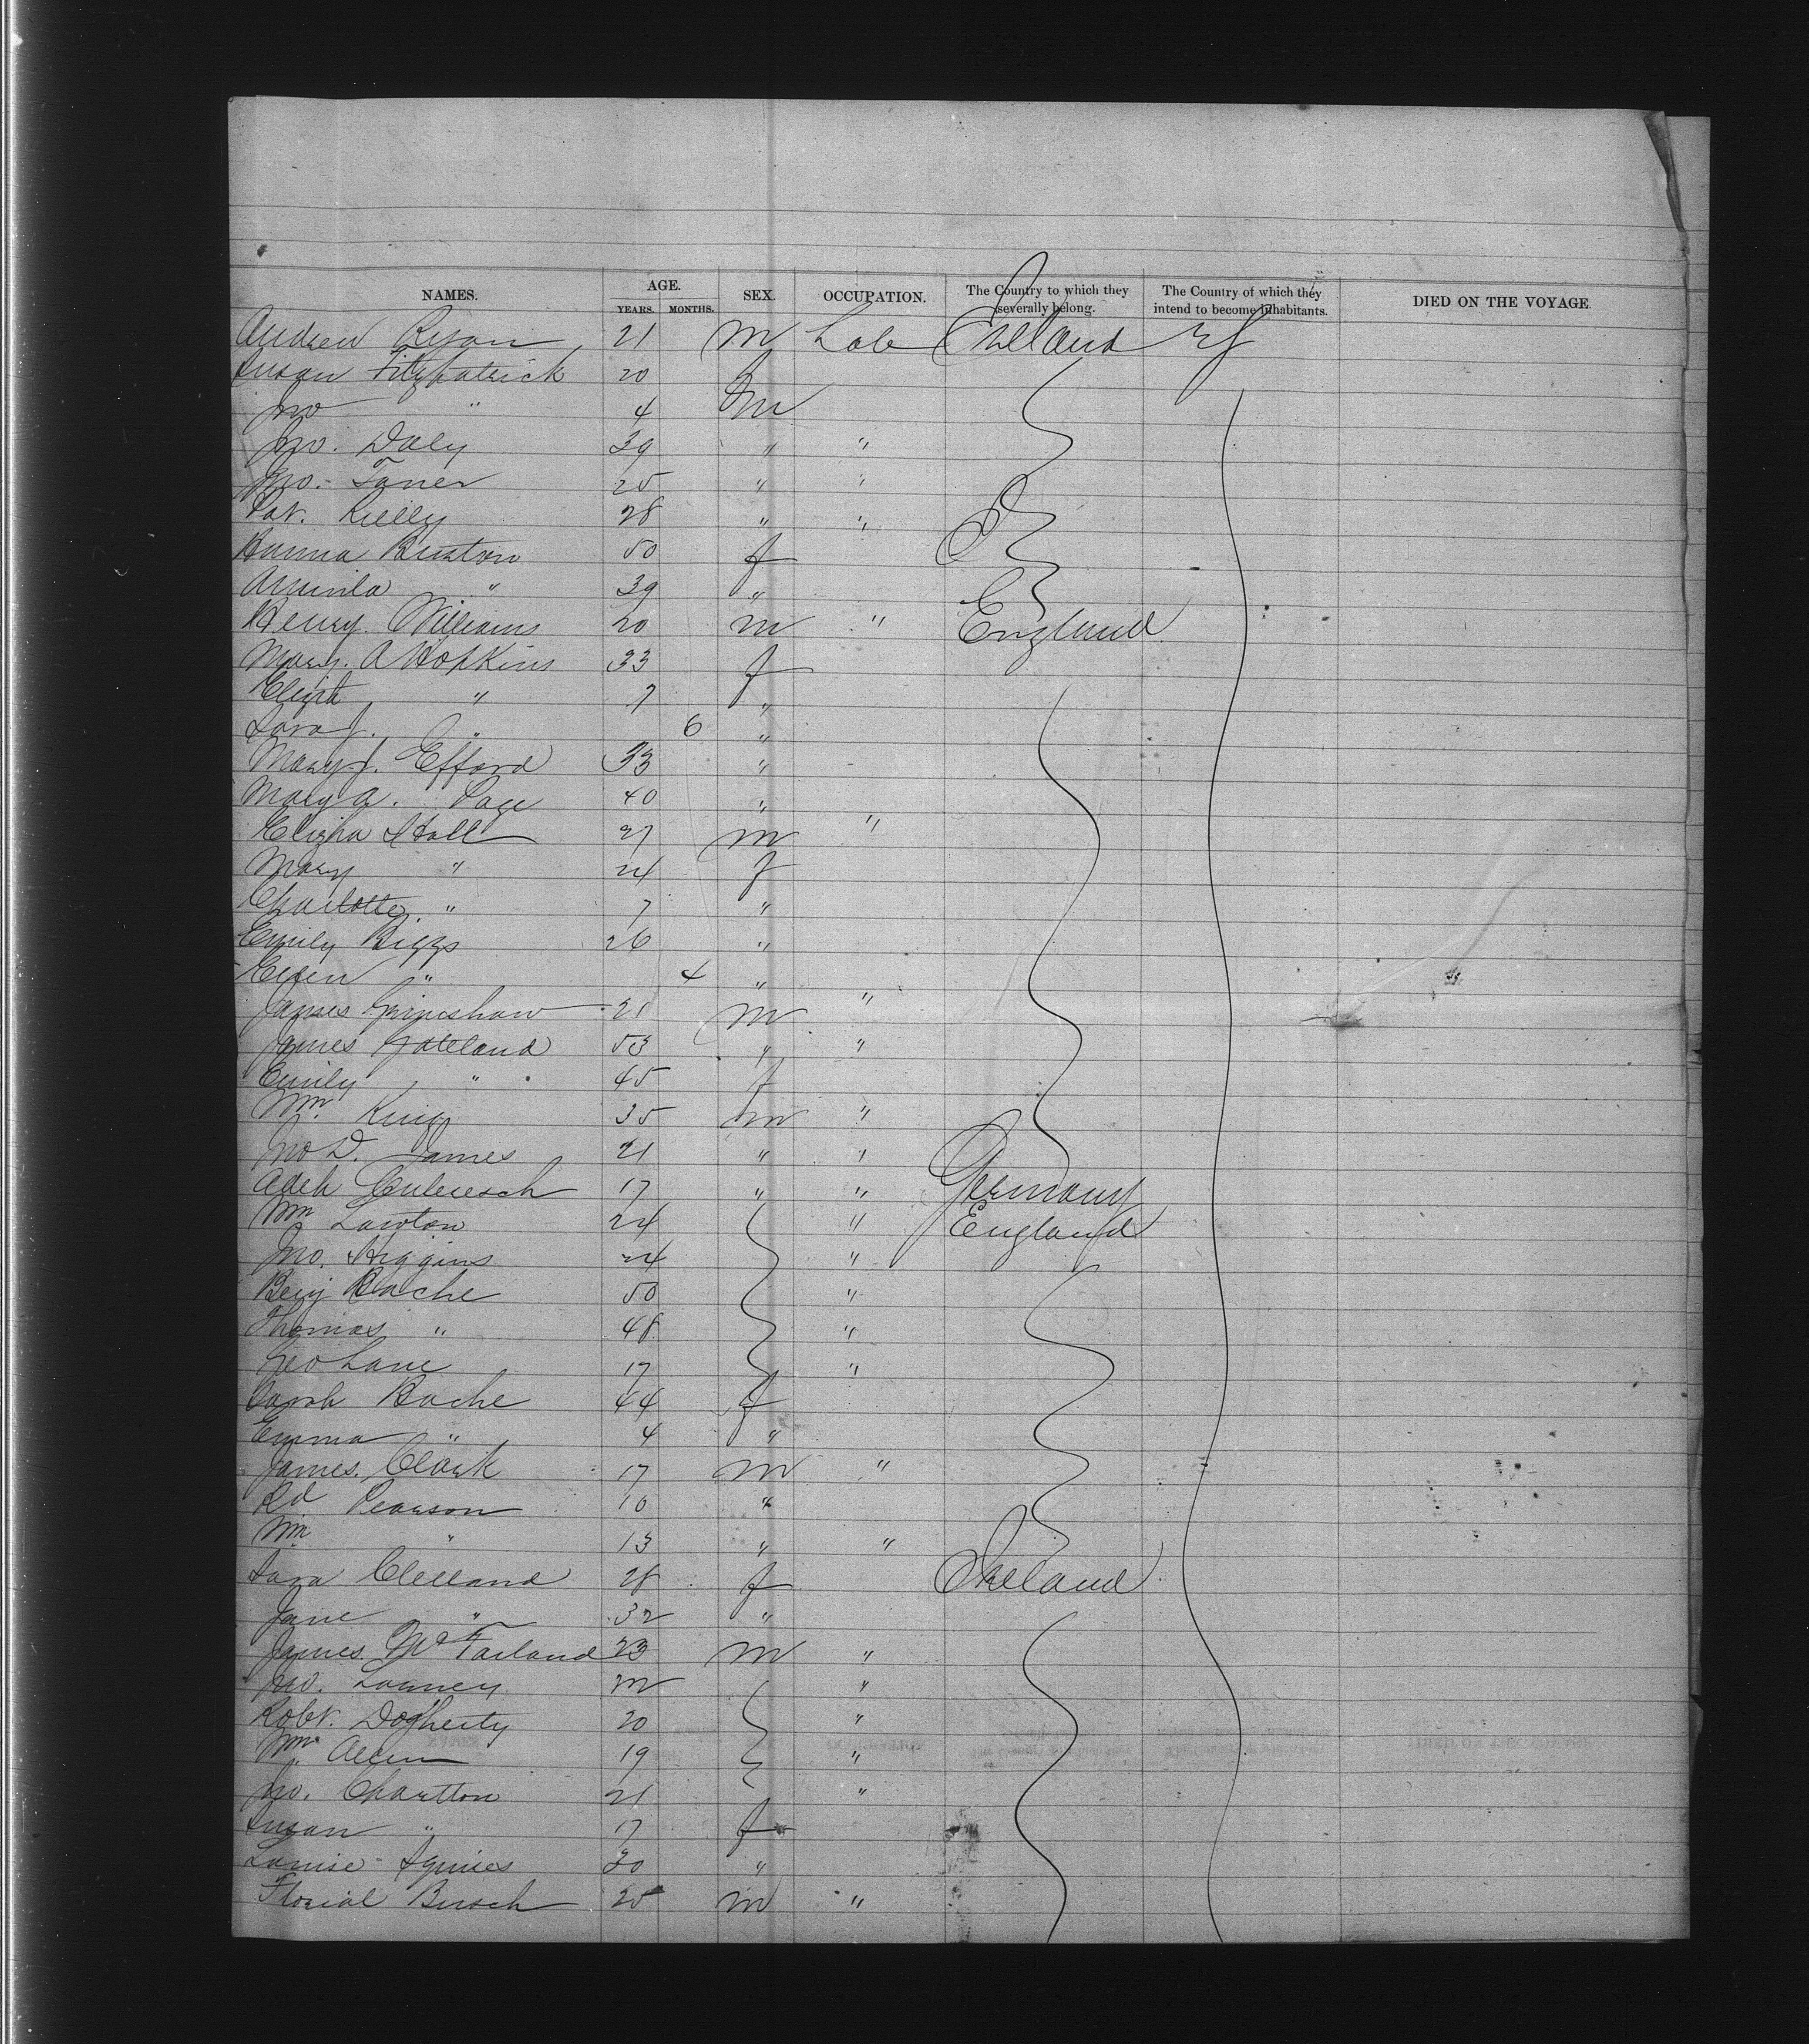 NAMES. AGE. SEX. OCCUPATION. The Country to which they severally belong. The Country of which they intend to become inhabitants. DIED ON THE VOYAGE.
YEARS. MONTHS.
Andrew Ryan 21 m Lab Ireland
Susan Fitzpatrick 20 f
Jno " 4 m
Jno. Daly 39 " "
Jno. Toner 25 " "
Pat. Kielly 28 " "
Hanna Buxton 50 f
" 39 "
Henry Williams 20 m " England
Mary. A Hopkins 33 f
Eliza " 7 "
Sara J. " 6 "
Mary J. Efford 33 "
Mary A. Page 40 "
Elijha Hall 27 m "
Mary " 24 f
Charlotte " 7 "
Emily Biggs 26 "
Ellen " 4 "
James Grimshaw 21 m "
James Gateland 53 " "
Emily " 45 f
Wm King 35 m "
Jno D. James 21 " "
17 " " Germany
Wm Lawton 24 " England
Jno. Higgins 24 "
Benj Bache 50 "
Thomas " 48 "
Geo Lane 17 "
Sarah Bache 44 f
Emma " 4 "
James. Clark 17 m "
Rd Pearson 10 "
Wm " 13 " "
Sara Clelland 28 f Ireland
Jane " 32 "
James McFarland 23 m "
Jno. Lowney "
Robt. Dogherty 20 "
Wm Allen 19 "
Jno. Charlton 21 "
Susan " 17 f
Louise Squires 30 "
Florial Birsch 25 m "